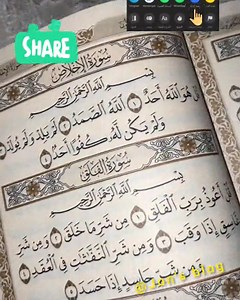 SHARE
سُورَةُ الإِخْلَاصِ
بِسْمِ اللَّهِ الرَّحْمَٰنِ الرَّحِيمِ
هُوَ اللَّهُ أَحَدٌ ١ اللَّهُ الصَّمَدُ ٢ لَمْ يَلِدْ وَلَمْ يُولَدْ
وَلَمْ يَكُن لَّهُ كُفُوًا أَحَدٌ ٤
سُورَةُ الفَلَقِ
بِسْمِ اللَّهِ الرَّحْمَٰنِ الرَّحِيمِ
أَعُوذُ بِرَبِّ الْفَلَقِ ١ مِن شَرِّ مَا خَلَقَ ٢ وَمِن شَرِّ
غَاسِقٍ إِذَا وَقَبَ ٣ وَمِن شَرِّ النَّفَّٰثَٰتِ فِي الْعُقَدِ ٤
شَرِّ حَاسِدٍ إِذَا حَسَدَ ٥
blog